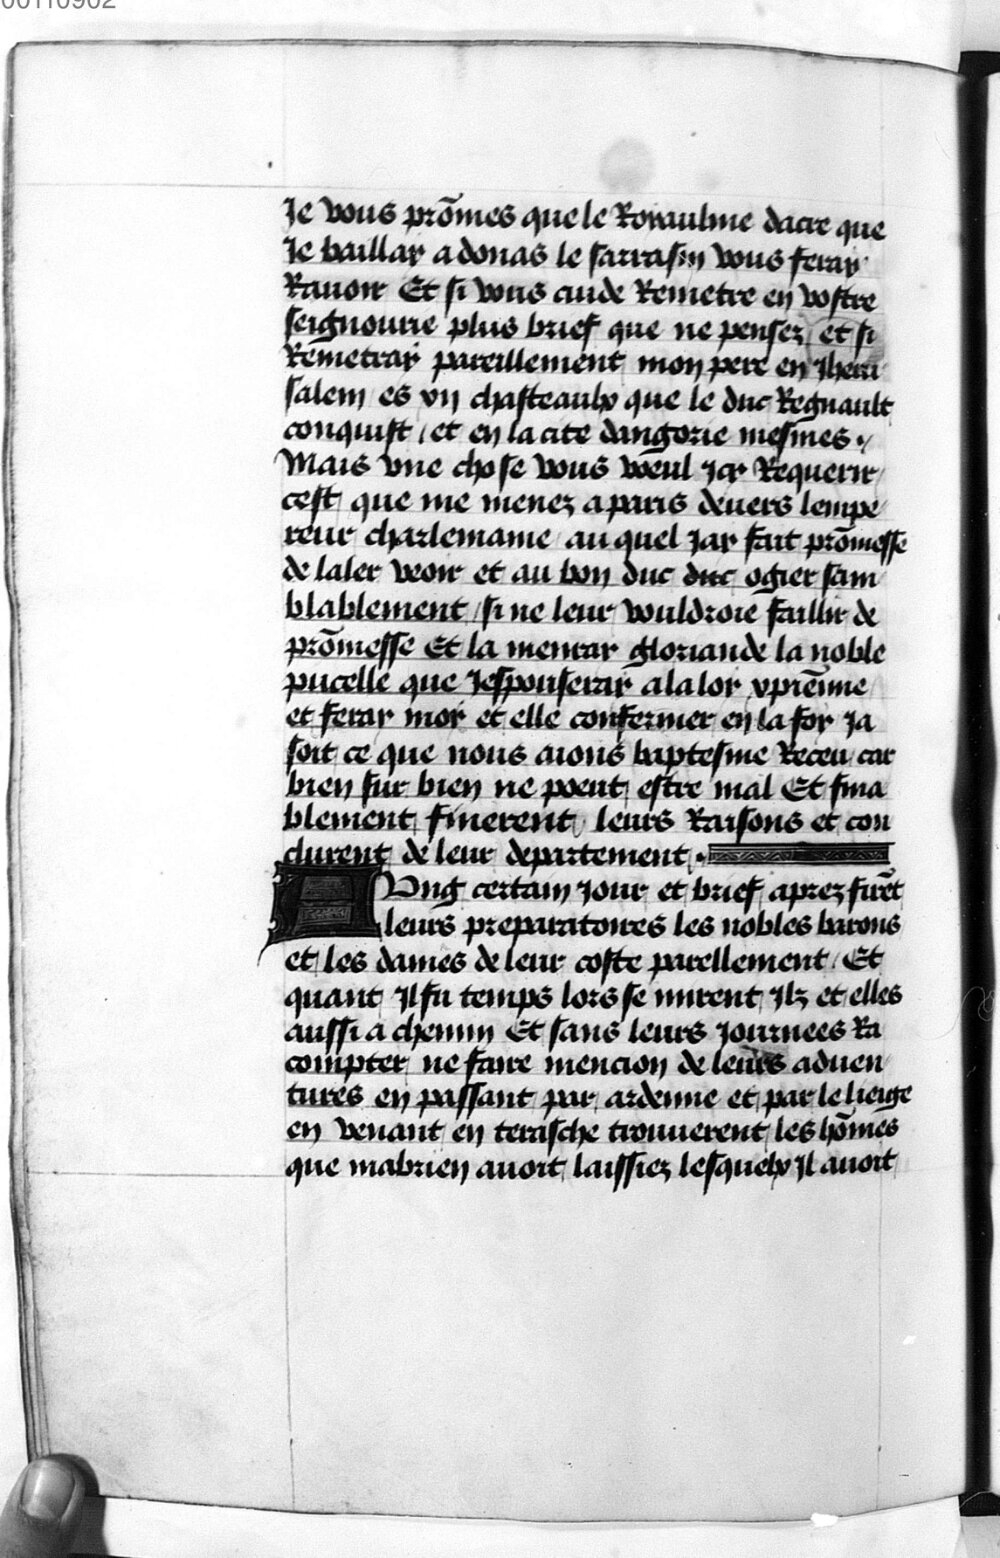 00110902
Je vous prõmes que le Royaulme dacre que
Je baillay a donas le sarrasin vous feray
Ravoir Et si vous cuide Remetre en vostre
seignourie plus brief que ne pensez / et si
Remetray pareillement mon pere en Jheru
salem es vij chasteaulx que le duc Regnault
conquist / et en la cite dangorie mesmes ./
Mais vne chose vous voeul Jcy Requerir
cest que me menez a paris devers lempe
reur charlemaine au quel Jay fait prõmesse
de laler veoir et au bon duc duc ogier sam
blablement / si ne leur vouldroie faillir de
prõmesse Et la menray gloriande la noble
pucelle que Jespouseray a la loy xpiẽnne
et feray moy et elle confermer en la foy Ja
soit ce que nous aions baptesme Receu car
bien sur bien ne poeut estre mal Et fina
blement finerent leurs Raisons et con
clurent de leur departement .
A Ung certain Jour et brief aprez firẽt
leurs preparatoires les nobles barons
et les dames de leur coste parellement / Et
quant Jl fu temps lors se mirent Jlz et elles
aussi a chemin Et sans leurs Journees Ra
compter ne faire mencion de leurs adven
tures en passant par ardenne et par le liege
en venant en terasche trouverent les hõmes
que mabrien avoit laissiez lesquelx Jl avoit